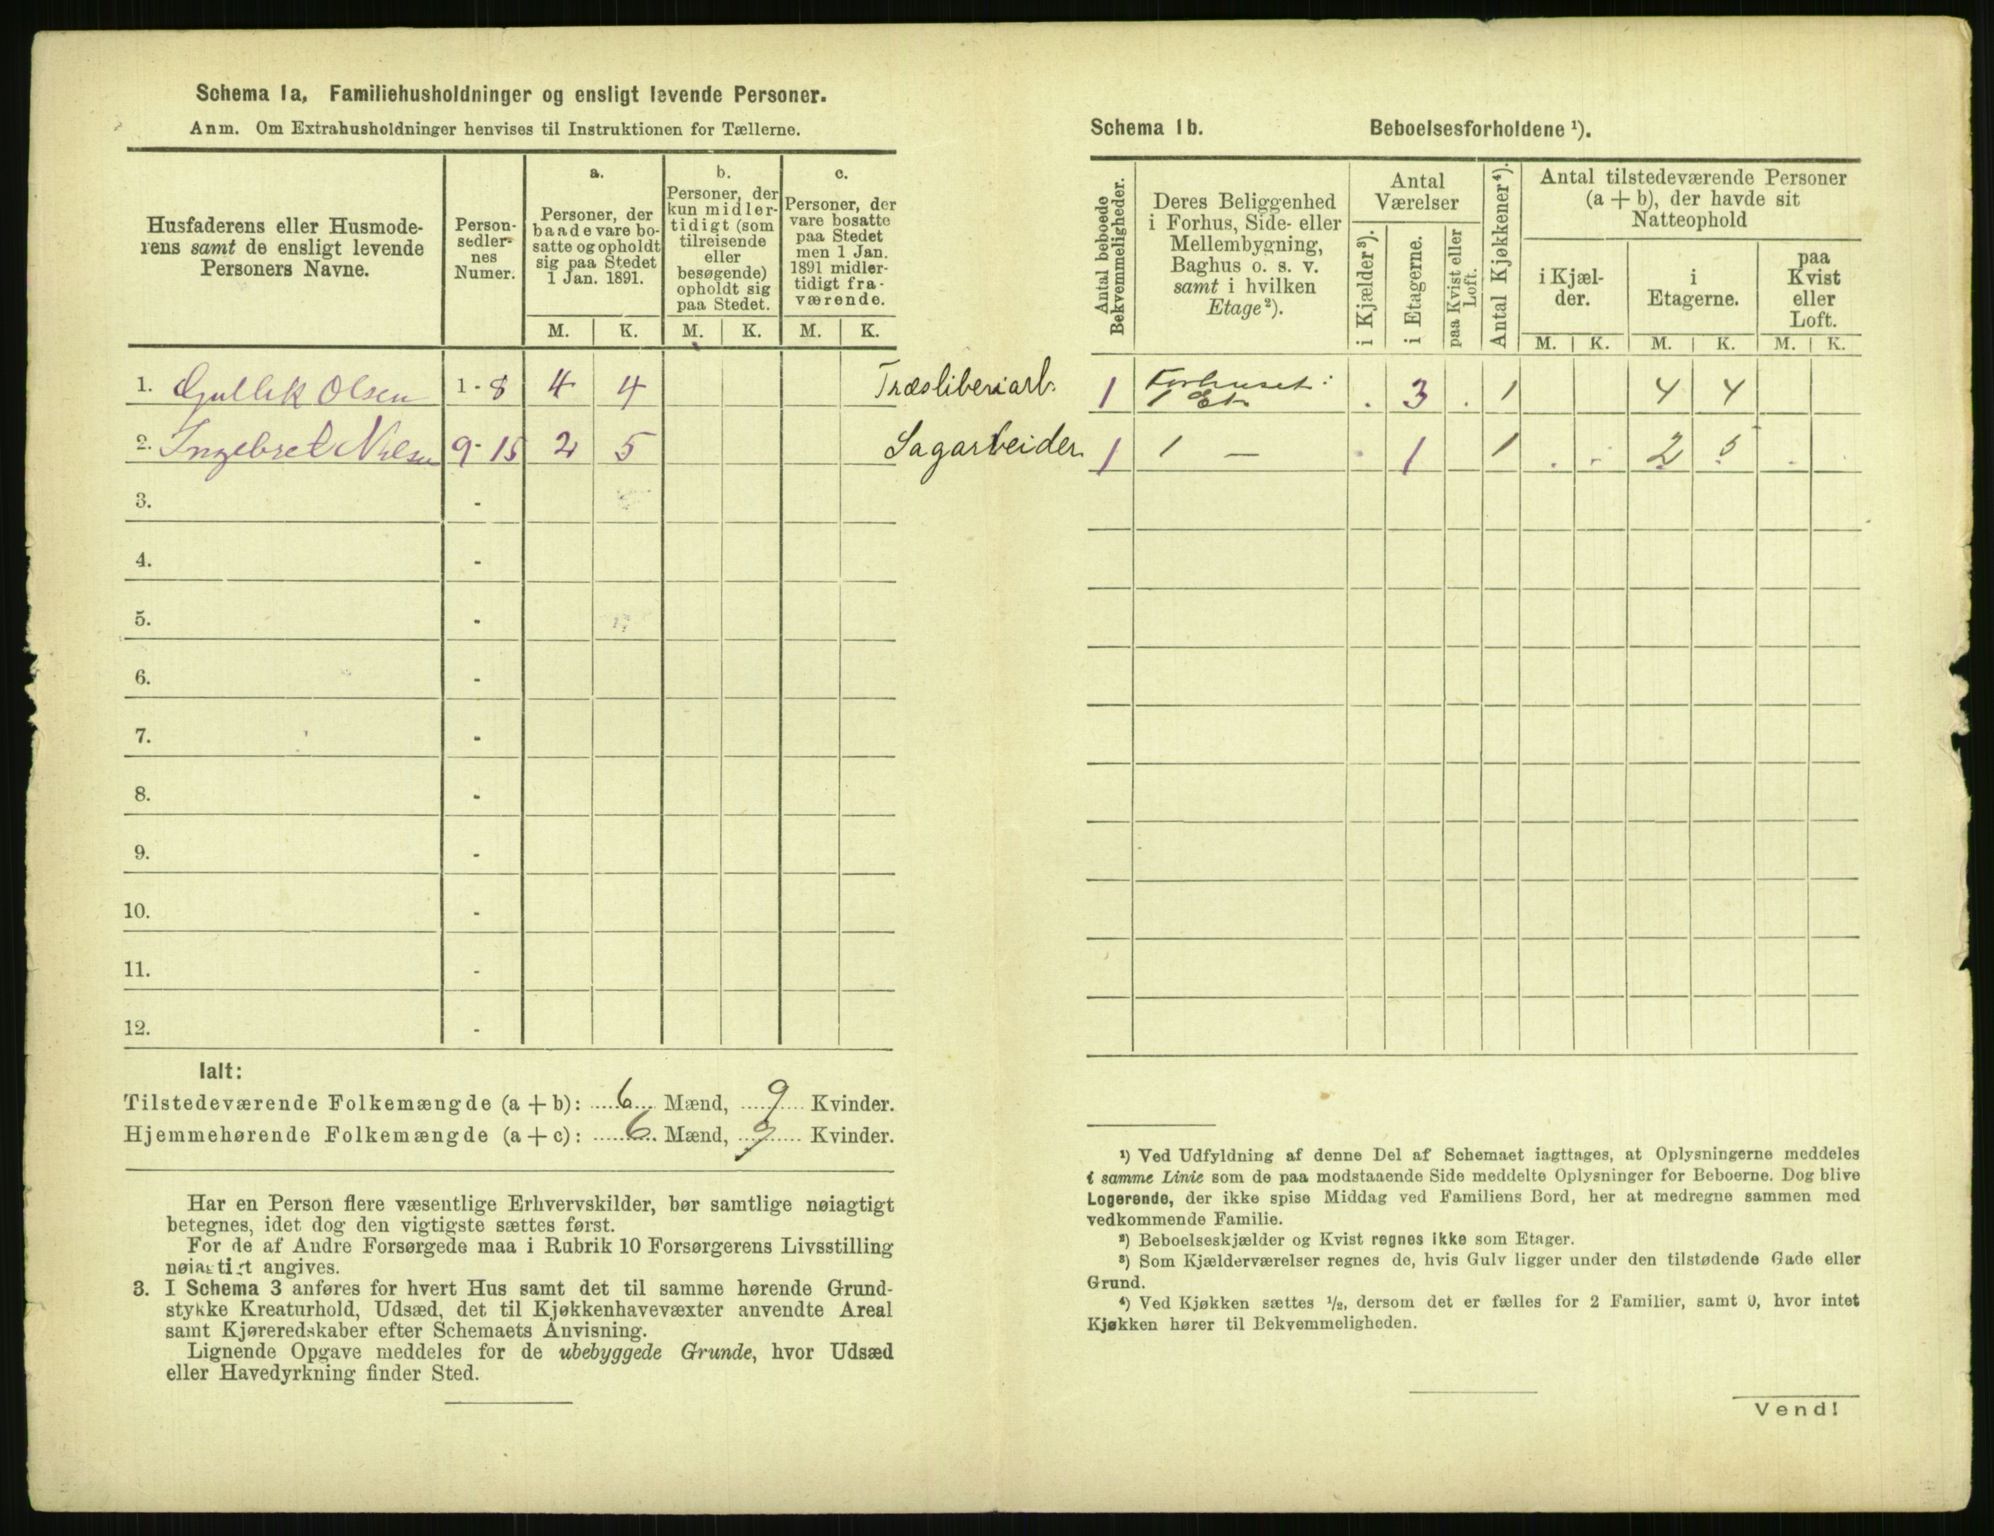 Schema 1a. Familiehusholdninger og ensligt levende Personer.
Anm. Om Extrahusholdninger henvises til Instruktionen for Tællerne.
Husfaderens eller Husmode-
rens samt de ensligt levende
Personers Navne.
Person-
sedler-
nes
Numer.
a.
Personer, der
baade vare bo-
satte og opholdt
sig paa Stedet
1 Jan. 1891.
b.
Personer, der
kun midler-
tidigt (som
tilreisende
eller
besøgende)
opholdt sig
paa Stedet.
c.
Personer, der
vare bosatte
paa Stedet
men 1 Jan.
1891 midler-
tidigt fra-
værende.
M. K. M. K. M. K.
1. Gullik Olsen 1-8 4 4 Træsliberiarb.
2. Ingebret Nilsen 9-15 2 5 Sagarbeider
3. -
4. -
5. -
6. -
7. -
8. -
9. -
10. -
11. -
12. -
Ialt:
Tilstedeværende Folkemængde (a + b): 6 Mænd, 9 Kvinder.
Hjemmehørende Folkemængde (a + c): 6 Mænd, 9 Kvinder.
Har en Person flere væsentlige Erhvervskilder, bør samtlige nøiagtigt
betegnes, idet dog den vigtigste sættes først.
For de af Andre Forsørgede maa i Rubrik 10 Forsørgerens Livsstilling
nøiagtigt angives.
3. I Schema 3 anføres for hvert Hus samt det til samme hørende Grund-
stykke Kreaturhold, Udsæd, det til Kjøkkenhavevæxter anvendte Areal
samt Kjøreredskaber efter Schemaets Anvisning.
Lignende Opgave meddeles for de ubebyggede Grunde, hvor Udsæd
eller Havedyrkning finder Sted.
Schema 1b. Beboelsesforholdene ¹).
Antal beboede
Bekvemmeligheder.
Deres Beliggenhed
i Forhus, Side- eller
Mellembygning,
Baghus o. s. v.
samt i hvilken
Etage²).
Antal
Værelser
i Kjælder³).
i Etagerne.
paa Kvist eller
Loft.
Antal Kjøkkener⁴).
Antal tilstedeværende Personer
(a + b), der havde sit
Natteophold
i Kjæl-
der.
i
Etagerne.
paa
Kvist
eller
Loft.
M. K. M. K. M. K.
1 Forhuset: 1 Et. . 3 . 1 4 4
1 1 — . 1 1 . . 2 5 .
¹) Ved Udfyldning af denne Del af Schemaet iagttages, at Oplysningerne meddeles
i samme Linie som de paa modstaaende Side meddelte Oplysninger for Beboerne. Dog blive
Logerende, der ikke spise Middag ved Familiens Bord, her at medregne sammen med
vedkommende Familie.
²) Beboelseskjælder og Kvist regnes ikke som Etager.
³) Som Kjælderværelser regnes de, hvis Gulv ligger under den tilstødende Gade eller
Grund.
⁴) Ved Kjøkken sættes ½, dersom det er fælles for 2 Familier, samt 0, hvor intet
Kjøkken hører til Bekvemmeligheden.
Vend!